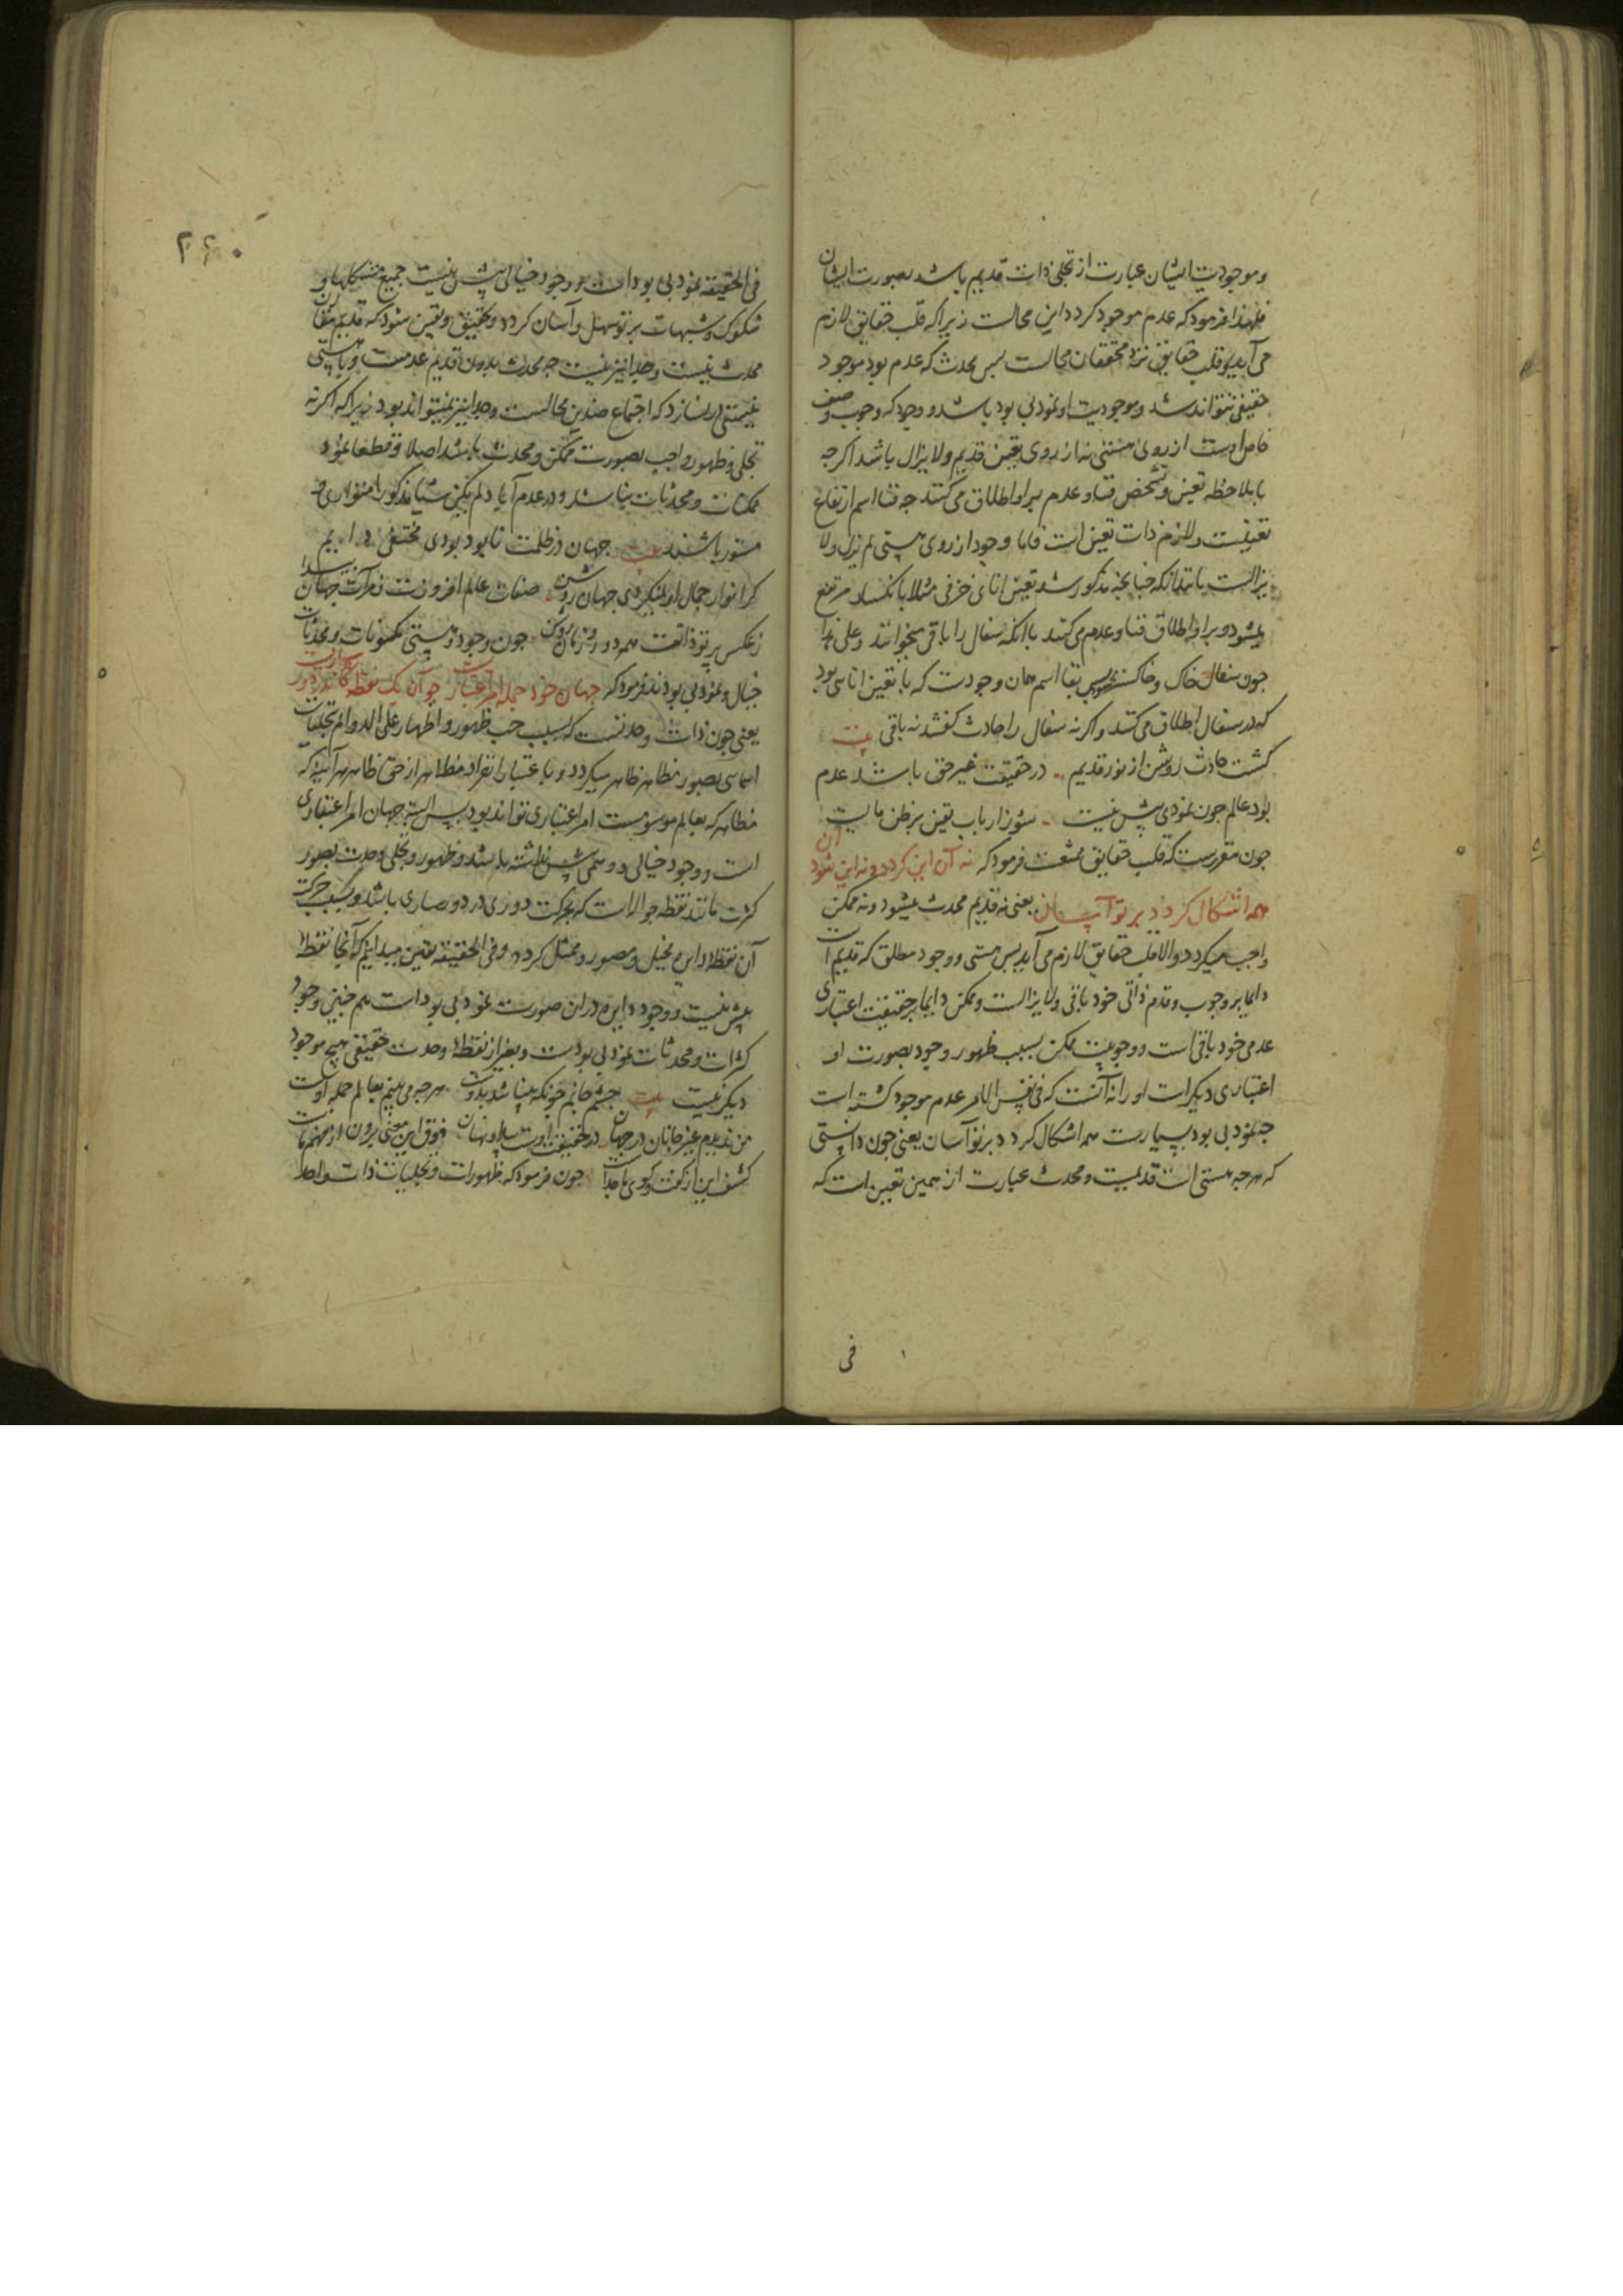 وموجودیت ایشان عبارت از تجلی ذات قدیم باشد بصورت ایشان
فلهذا فرمود که عدم موجود کردد این محالست زیرا که قلب حقایق لازم
می آید و قلب حقایق نزد محققان محالست پس محدث که عدم بود موجود
حقیقی نتواند شد و موجودیت او نمود بی بود باشد و وجود که وجوب وصف
خاص اوست از روی هستی نه از روی تعین قدیم ولا یزال باشد اکرچه
با ملاحظه تعین وتشخص فنا و عدم برو اطلاق می کنند چه فنا اسم ارتفاع
تعینست ولازم ذات تعین است فاما وجود از روی هستی لم یزل ولا
یزالست بدانکه چنانچه مذکور شد تعین انائی خزفی مثلا بانکسار مرتفع
میشود و برو اطلاق فنا و عدم می کنند با آنکه سفال را باقی میخوانند وعلی هذا
چون سفال خاک وخاکستر شود پس بقا اسم همان وجودست که با تعین انائی بود
که در سفال اطلاق می کنند و اکر نه سفال را حادث کفتند نه باقی بیت
کشت حادث روشن از نور قدیم در حقیقت غیر حق باشد عدم
بود عالم چون نمودی پیش نیست شور ارباب یقین بر ظن ما لیست
چون مقررست که قلب حقایق ممتنعست فرمود که نه آن این کردد و نه این شود آن
همه اشکال کردد بر تو آسان یعنی نه قدیم محدث میشود ونه ممکن
واجب میکردد والا قلب حقایق لازم می آید پس هستی و وجود مطلق که قدیم است
دایما بر وجوب وقدم ذاتی خود باقی ولا یزالست وممکن دایما بر حقیقت اعتباری
عدمی خود باقی است و وجوبیت ممکن بسبب ظهور وجود بصورت او
اعتباری دیکر است او را نه آنست که فی نفس الامر عدم موجود کشته است
چه نمود بی بود بسیارست همه اشکال کردد بر تو آسان یعنی چون دانستی
که هرچه هستی است قدیمست ومحدث عبارت از همین تعین است که
فی
۲۶۰
فی الحقیقه نمود بی بود است و وجود خیالی بیش نیست جمیع مشکلها و
شکوک وشبهات بر تو سهل و آسان کردد وتحقیق ویقین شود که قدیم مقارن
محدث نیست وجدا نیز نیست چه محدث بدون قدیم عدمست و با هستی
نیستی در نسازد که اجتماع ضدین محالست وجدا نیز نمیتواند بود زیرا که اکر نه
تجلی وظهور واجب بصورت ممکن ومحدث باشد اصلا وقطعا نمود
ممکنات ومحدثات نباشد ودر عدم آباد لم یکن شیئا مذکورا متواری و
مستور باشند بیت جهان در ظلمت نابود بودی مختفی دایم
کر انوار جمال او نکردی جهان روشن صفات عالم افروزت ز مرآت جهان پیدا
ز عکس پرتو ذاتت همه دور و زمان روشن چون وجود و هستی مکنونات ومحدثات
خیال و نمود بی بودند فرمود که جهان خود جمله امر اعتباریست چو آن یک نقطه کاندر دور ساریست
یعنی چون ذات وحدتست که بسبب حب ظهور و اظهار علی الدوام بتجلیات
اسمائی بصور مظاهر ظاهر میکردد و با عتبار انفراد مظاهر از حق ظاهر هر آینه که
مظاهر که بعالم موسومست امر اعتباری تواند بود پس البته جهان امر اعتباری
است و وجود خیالی و وهمی بیش نداشته باشد وظهور وتجلی وحدت بصور
کثرت مانند نقطه جواله است که بحرکت دوری در دور ساری باشد وبسبب حرکت
آن نقطه دایره مخیل و مصور وممثل کردد وفی الحقیقه یقین میدانیم که آنجا نقطه
بیش نیست و وجود دایره در آن صورت نمود بی بود است هم چنین وجود
کثرات ومحدثات نمود بی بودست وبغیر از نقطه وحدت حقیقی هیچ موجود
دیکر نیست بیت چشم جانم چونکه بینا شد بدوست هرچه می بینم بعالم جمله اوست
من ندیدم غیر جانان در جهان در حقیقت اوست پیدا و نهان ذوق این معنی برون از فهم ماست
کشف این از کفت وکوی ما جداست چون فرمود که ظهورات وتجلیات ذات واحد